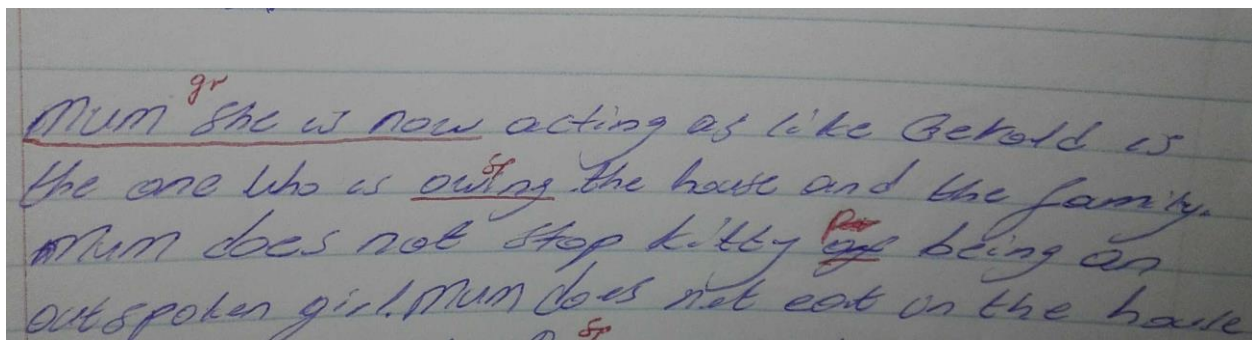 gr
Mum she is now acting as like Gerald is
sp
the one who is owing the house and the family.
Mum does not stop kitty of being an
outspoken girl. Mum does not eat in the house
sp